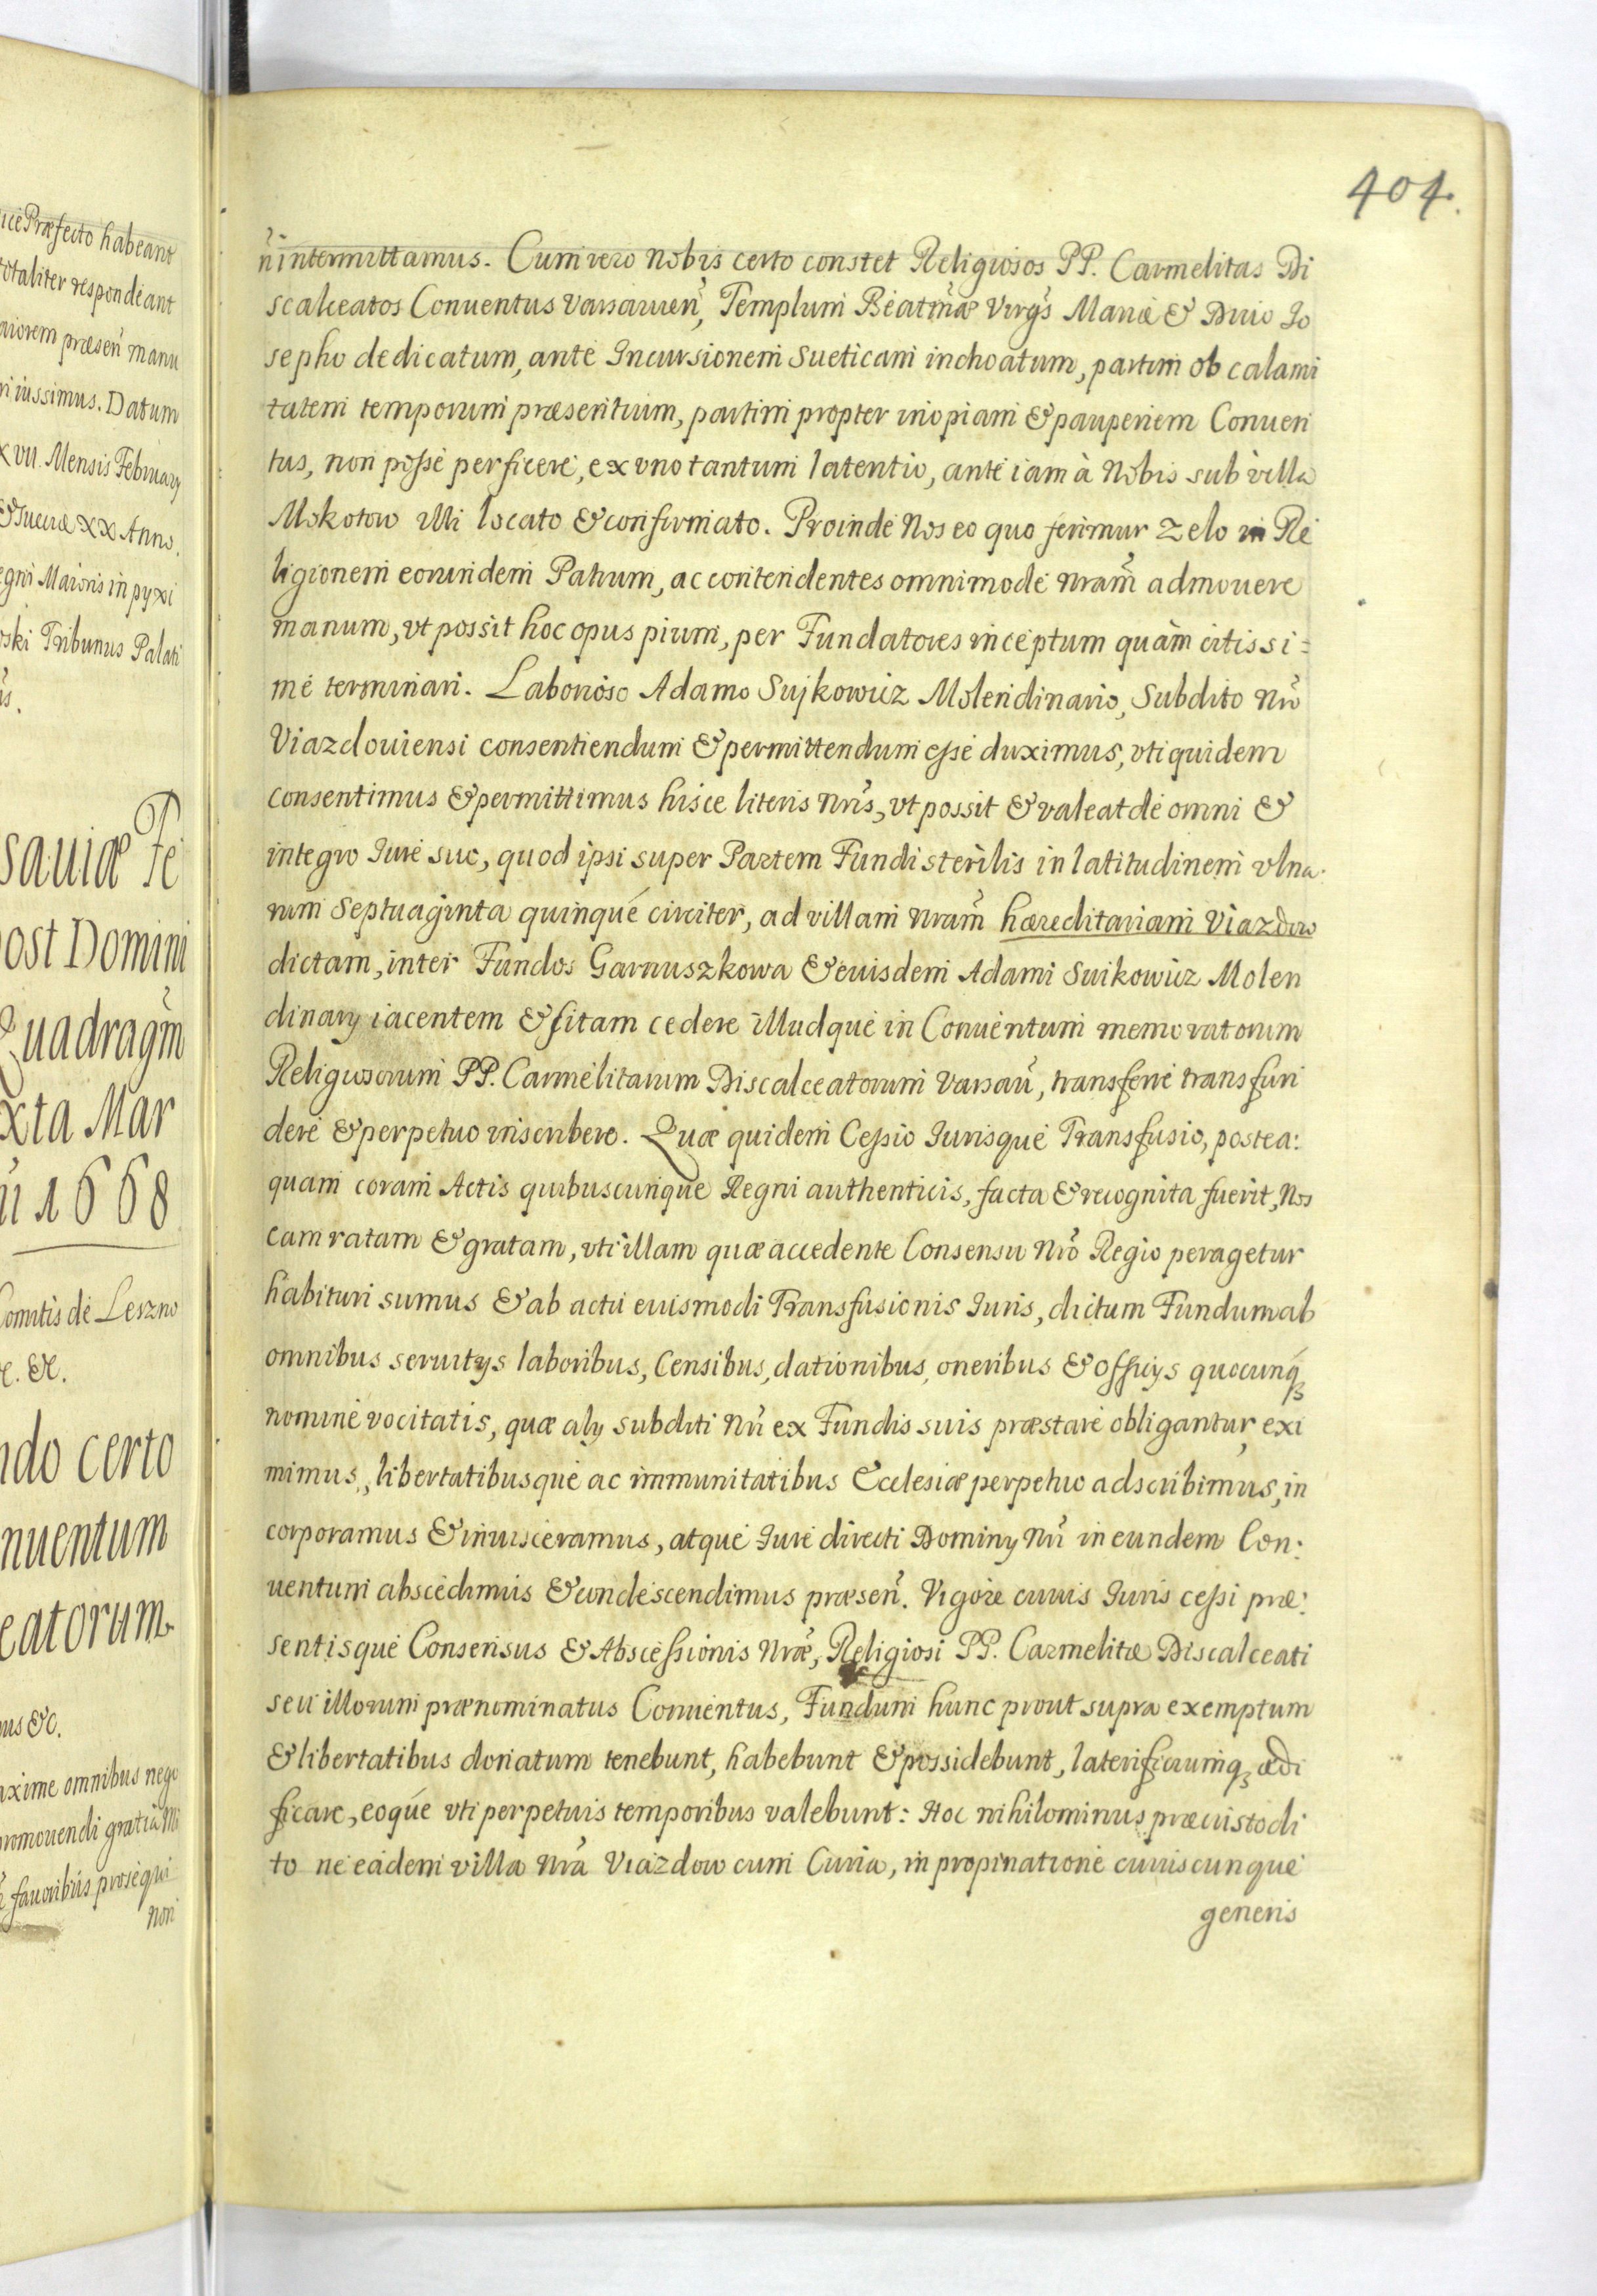 icè Præfecto habeant
totaliter respondeant
aiorem præsen̄ manu
ri iussimus. Datum
XVII. Mensis February
& Sueciæ XX Anno.
egni Maioris in pyxi
oski Tribunus Palati
sauiæ Fe
ost Domini
Quadragm̄
xta Mar
ii 1668
Comitis de Leszno
&c.
ndo certo
nuentum
eatorum
us &c.
axime omnibus nego
romouendi gratia
fauoribus prosequi
non
404.
n̄ intermittamus. Cum vero Nobis certo constet Religiosos PP. Carmelitas Di
scalceatos Conuentus Varsauien̄, Templum Beatm̄æ Virgs̄ Mariæ & Diuo Jo
sepho dedicatum, ante Incursionem Sueticam inchoatum, partim ob calami
tatem temporum præsentium, partim propter inopiam & pauperiem Conuen
tus, non posse perficere, ex vno tantum latentio, ante iam à Nobis sub villa
Mokotow illi locato & confirmato. Proinde Nos eo quo ferimur zelo in Re
ligionem eorundem Patrum, ac contendentes omnimode nram̄ admouere
manum, vt possit hoc opus pium, per Fundatores inceptum quàm citissi=
me terminari. Laborioso Adamo Sujkowicz Molendinario, Subdito Nr̄o
Viazdouiensi consentiendum & permittendum esse duximus, vti quidem
consentimus & permittimus hisce literis Nrīs, vt possit & valeat de omni &
integro Jure suo, quod ipsi super Partem Fundi sterilis in latitudinem vlna:
rum Septuaginta quinque circiter, ad villam Nram̄ hæreditariam Viazdow
dictam, inter Fundos Garnuszkowa & euisdem Adami Suikowicz Molen
dinary iacentem & sitam cedere illudque in Conuentum memoratorum
Religiosorum PP. Carmelitarum Discalceatorum Varsau̅, transferre transfun
dere & perpetuo inscribere. Quæ quidem Cessio Jurisque Transfusio, postea:
quam coram Actis quibuscunque Regni authenticis, facta & recognita fuerit, Nos
eam ratam & gratam, vti illam quæ accedente Consensu Nr̄o Regio peragetur
habituri sumus & ab actu euismodi Transfusionis Juris, dictum Fundum ab
omnibus seruitys laboribus, Censibus, dationibus, oneribus & Officys quocunq́
nomine vocitatis, quæ aly subditi Nr̄i ex Fundis suis præstare obligantur exi
mimus, libertatibusque ac immunitatibus Ecclesiæ perpetuo adscribimus, in
corporamus & inuisceramus, atque Jure directi Dominy Nr̄i in eundem Con:
uentum abscedimus & condescendimus præsen̄. Vigore cuius Juris cessi præ:
sentisque Consensus & Abscessionis Nrǣ, Religiosi PP. Carmelitæ Discalceati
seu illorum prænominatus Conuentus, Fundum hunc prout supra exemptum
& libertatibus donatum tenebunt, habebunt & possidebunt, laterificiumq́ ædi
ficare, eoque vti perpetuis temporibus valebunt: Hoc nihilominus præcustodi
to ne eadem villa Nr̄a Viazdow cum Curia, in propinatione cuiuscunque
generis